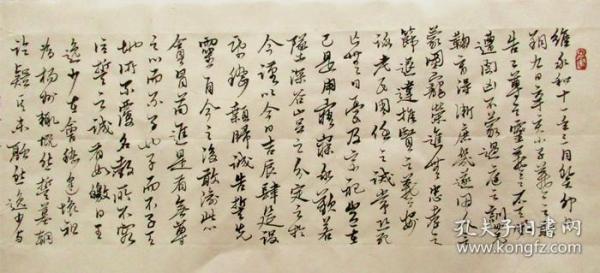 維永和十一年三月癸卯
朔九日辛亥小子羲之敢
告二尊之靈羲之不天
遭閔凶不蒙過庭之訓
鞠育得漸庶幾遂因
蒙國寵榮進無忠孝之
節退違推賢之義每仰
詠老氏周任之誡常恐死
亡無日憂及宗祀豈在
已是用寤寐永歎若
墜深谷止足之分定之於
今謹以今月吉辰肆筵設
席稽顙歸誠告誓先
靈自今之後敢渝此心
貪冒苟進是有無尊
之心而不子也子而不子天
地所不覆名教所不容
信誓之誠有如皦日王
逸少在會稽懷祖
為揚州慨然誓墓朝
論疑其未然逸少
孔夫子旧书网
www.kongfz.com